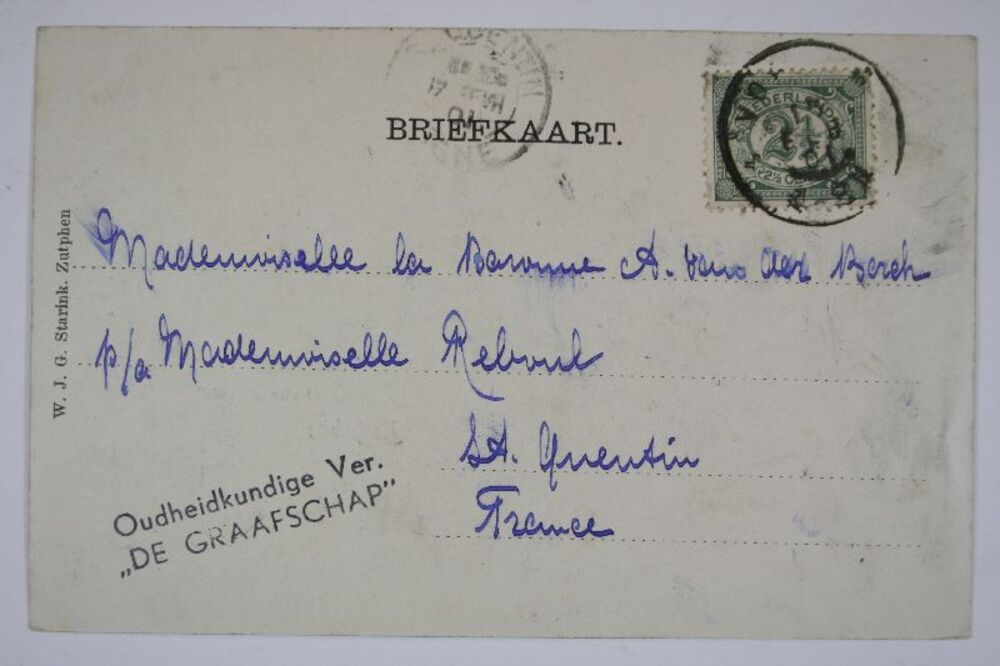 BRIEFKAART.
NEDERLAND
2½
W. J. G. Starink. Zutphen
Mademoiselle la Baronne A. van der Borch
p/a Mademoiselle Reboul
St. Quentin
France
Oudheidkundige Ver.
„DE GRAAFSCHAP”